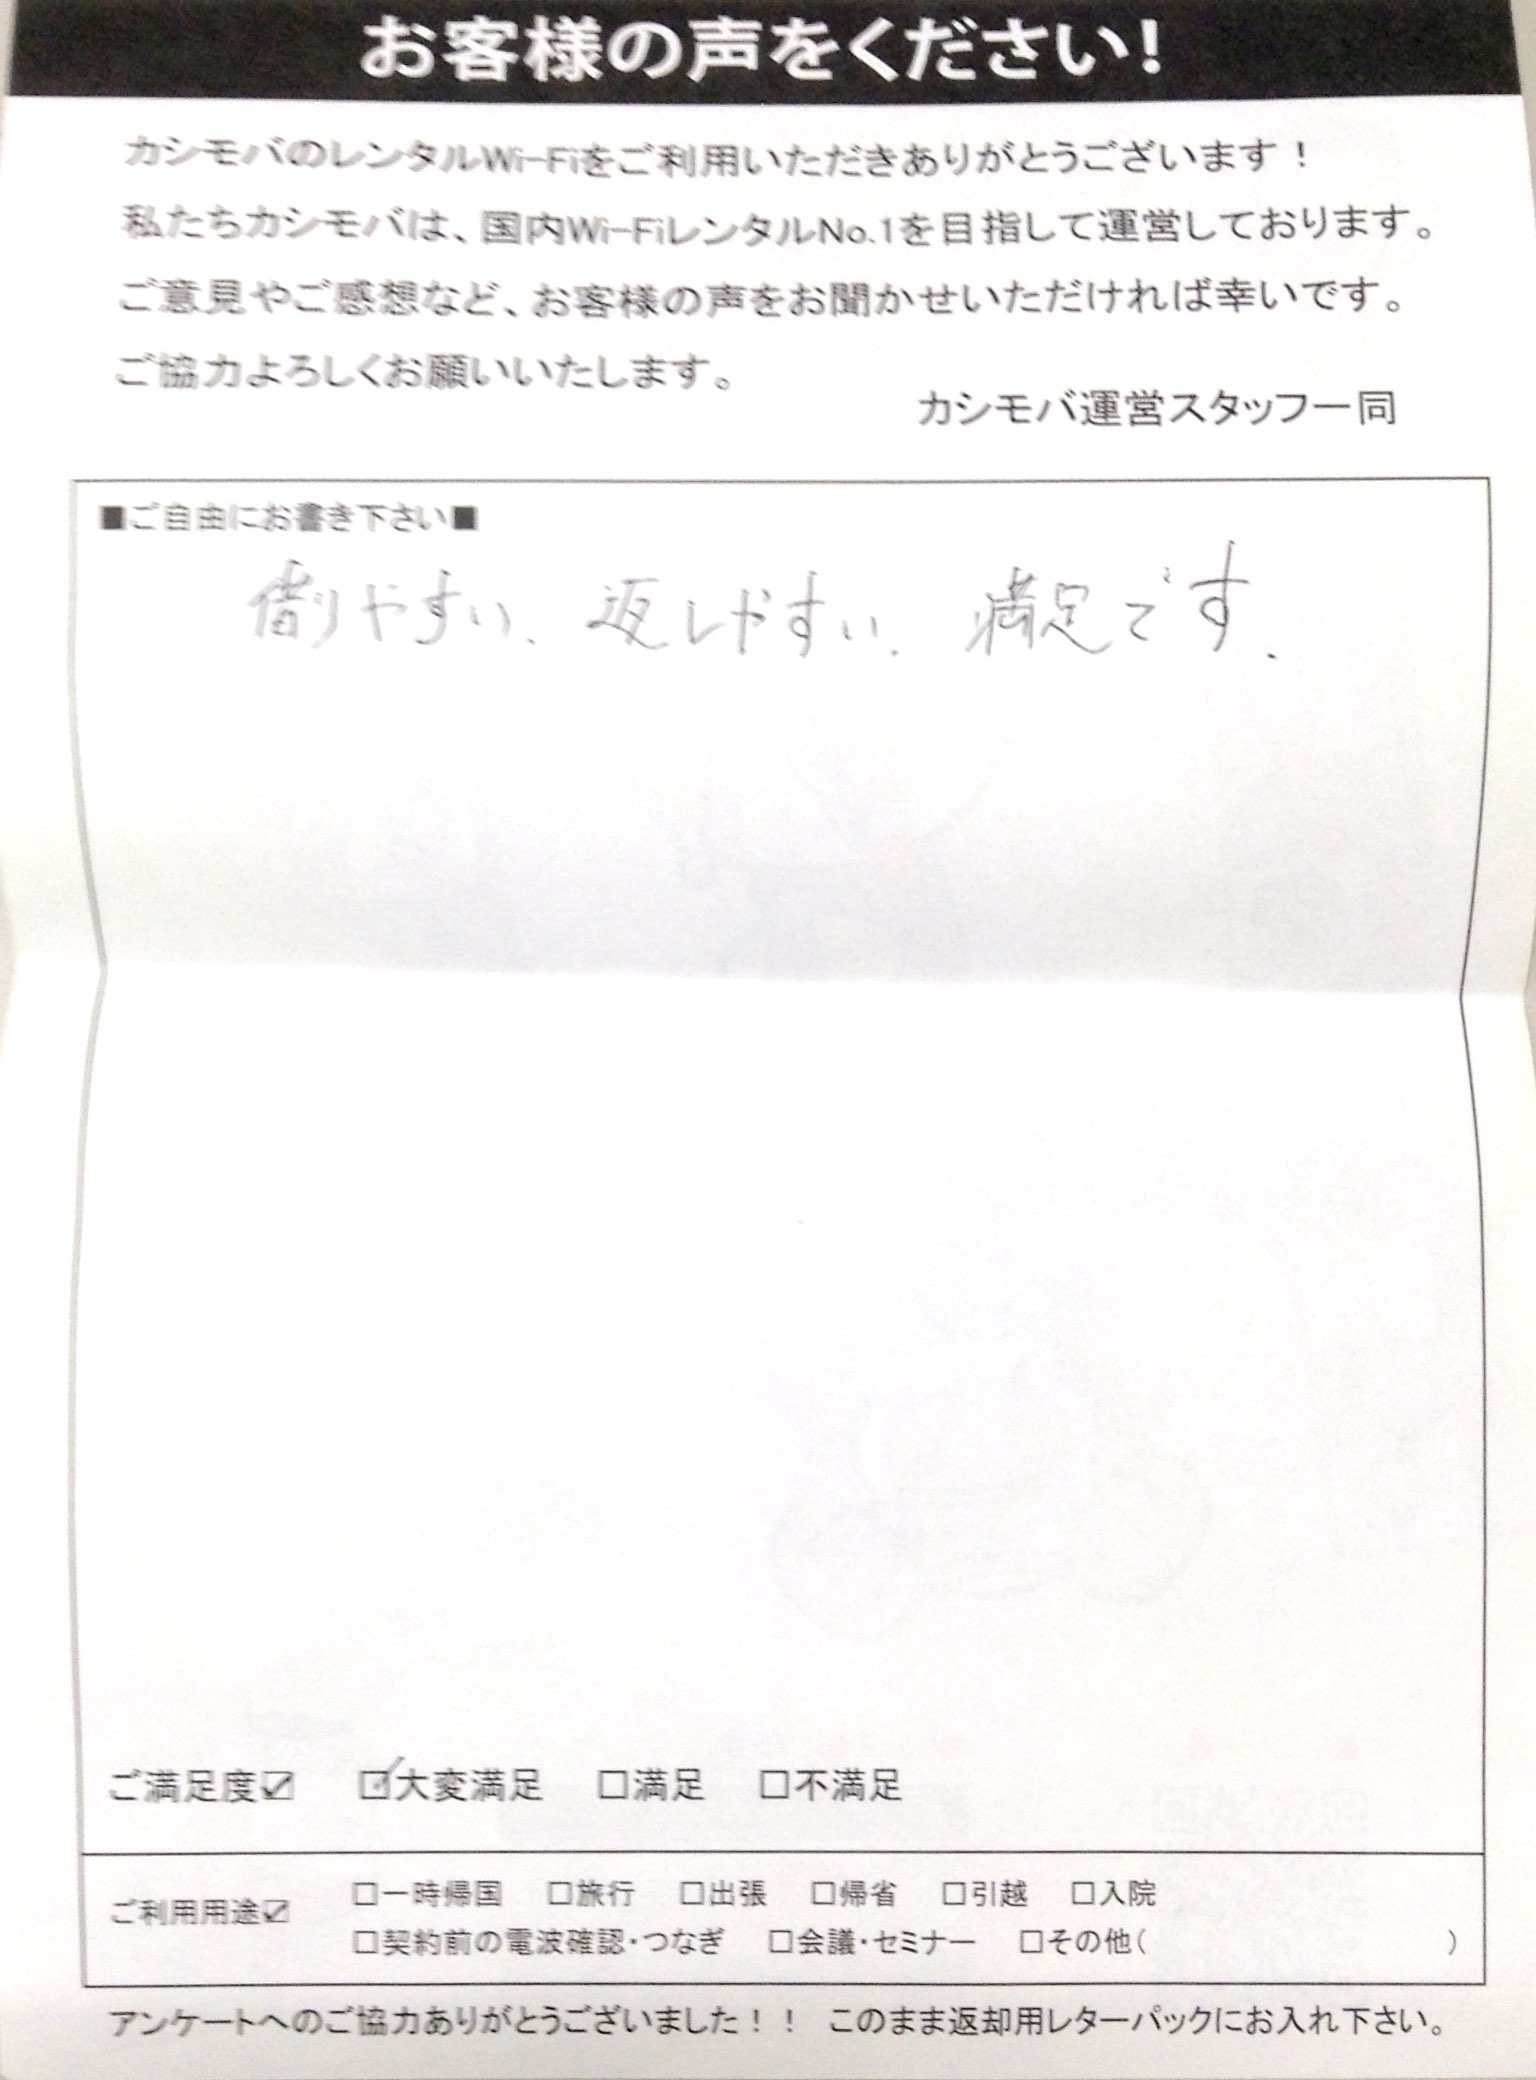 お客様の声をください!
カシモバのレンタルWi-Fiをご利用いただきありがとうございます！
私たちカシモバは、国内Wi-FiレンタルNo.1を目指して運営しております。
ご意見やご感想など、お客様の声をお聞かせいただければ幸いです。
ご協力よろしくお願いいたします。
カシモバ運営スタッフ一同
■ご自由にお書き下さい■
借りやすい、返しやすい、満足です.
ご満足度☑ ☑大変満足 □満足 □不満足
ご利用用途☑ □一時帰国 □旅行 □出張 □帰省 □引越 □入院
□契約前の電波確認・つなぎ □会議・セミナー □その他( )
アンケートへのご協力ありがとうございました！！ このまま返却用レターパックにお入れ下さい。